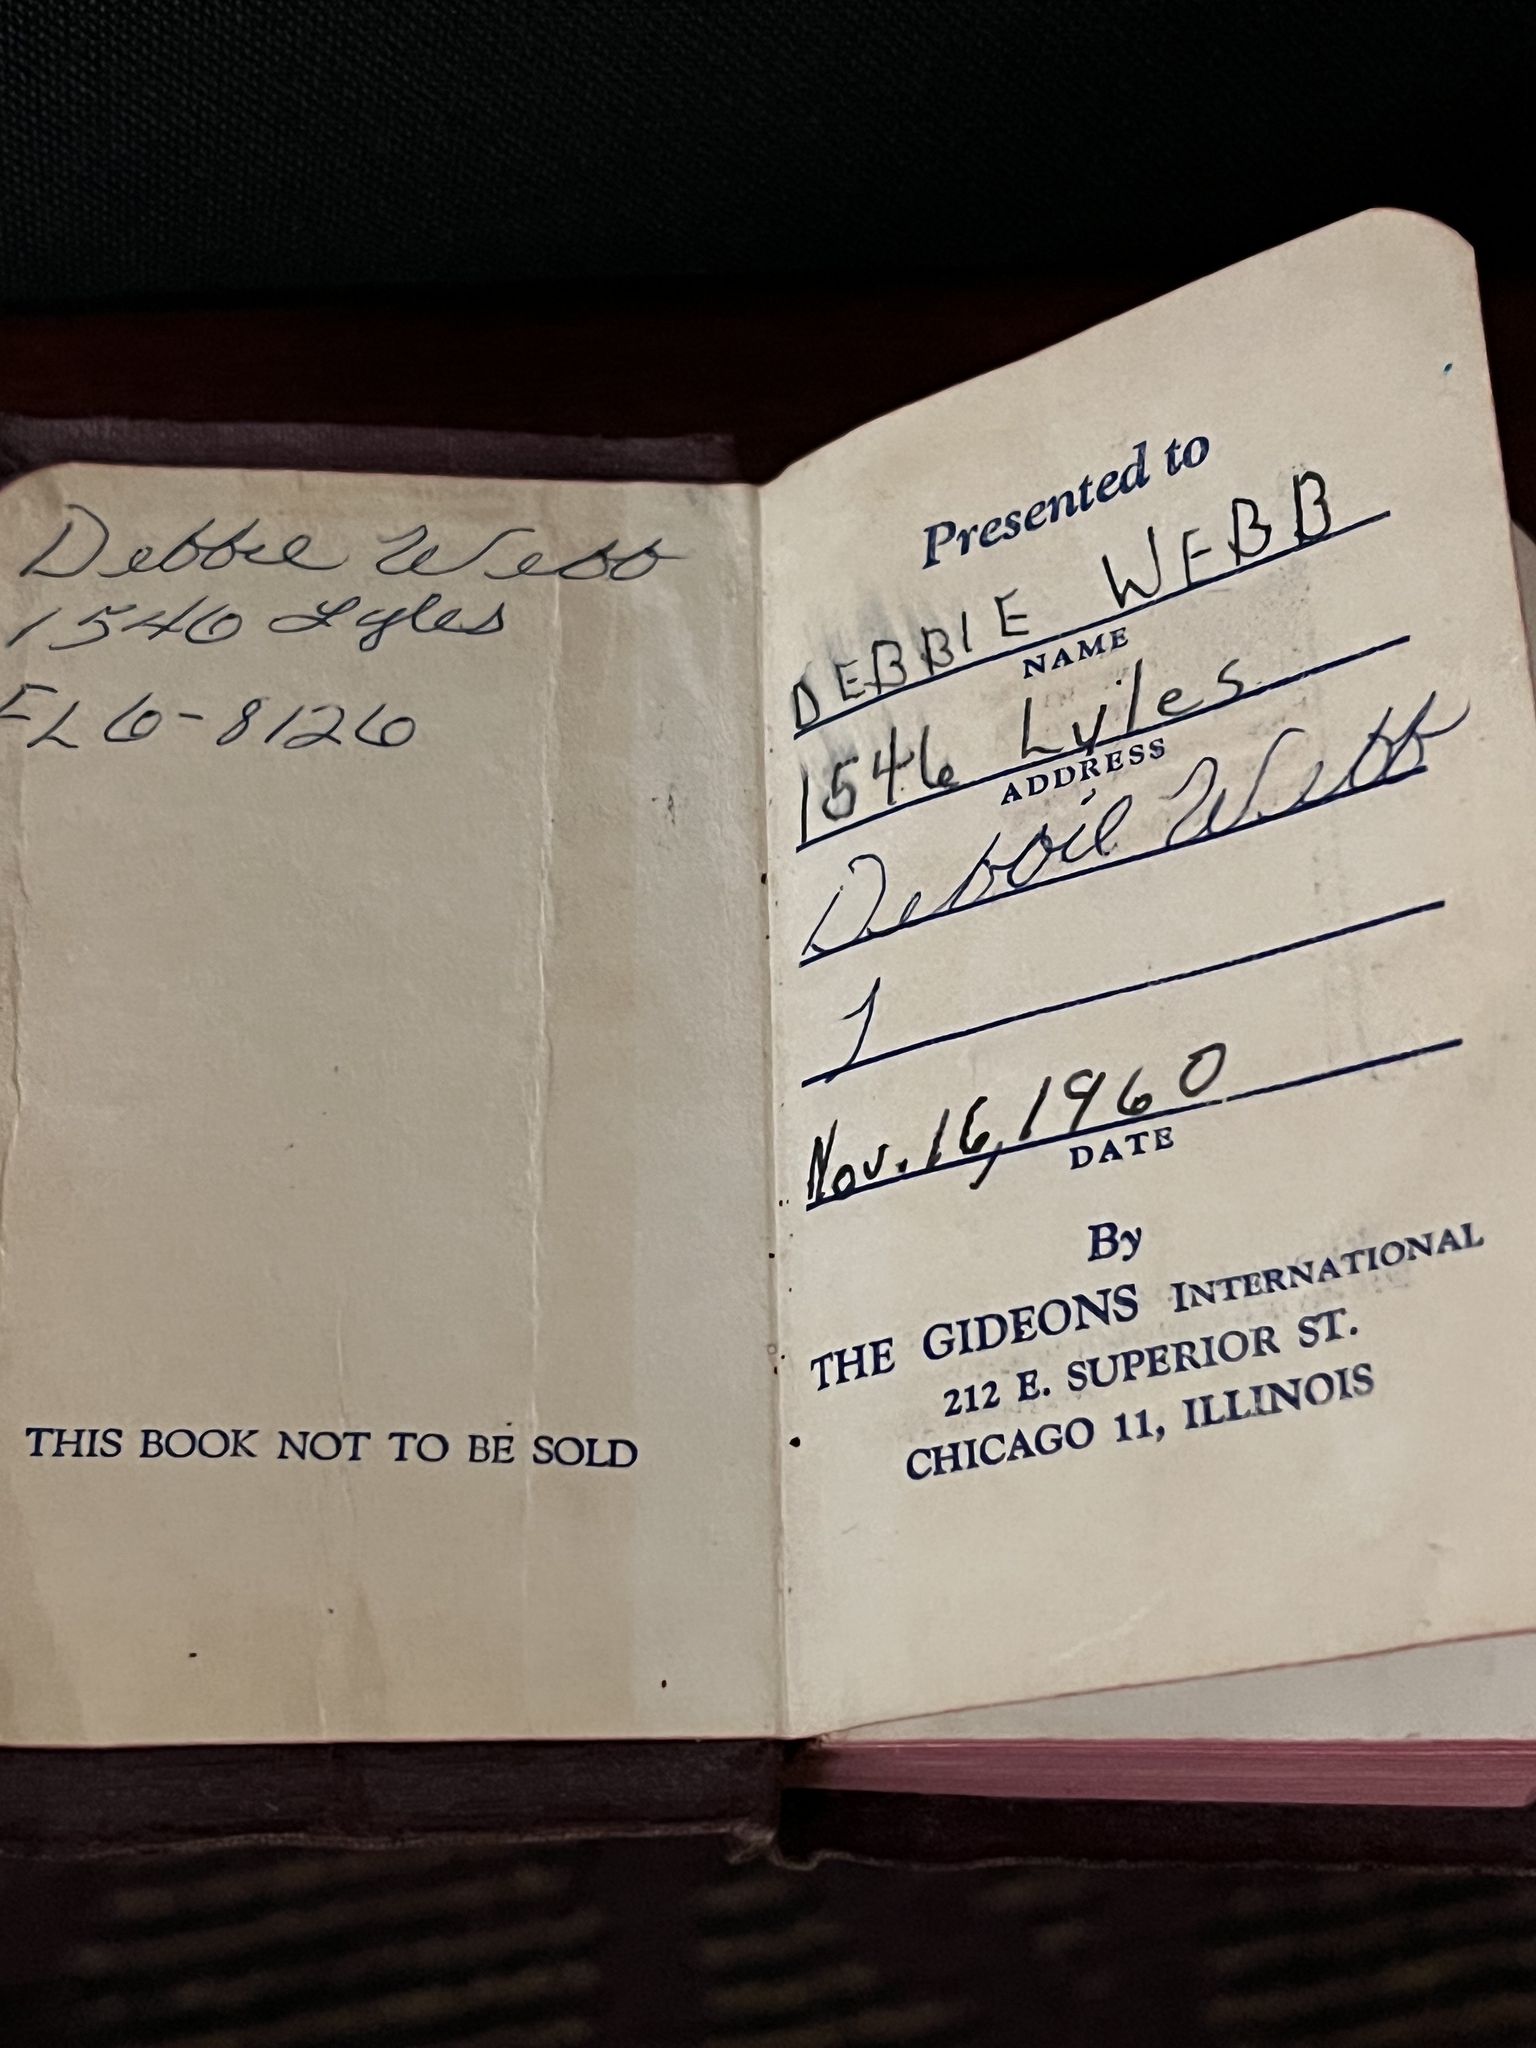 Debbie Webb
1546 Lyles
FL6-8126
THIS BOOK NOT TO BE SOLD
Presented to
DEBBIE WEBB
NAME
1546 Lyles
ADDRESS
Debbie Webb
1
Nov. 16, 1960
DATE
By
THE GIDEONS INTERNATIONAL
212 E. SUPERIOR ST.
CHICAGO 11, ILLINOIS